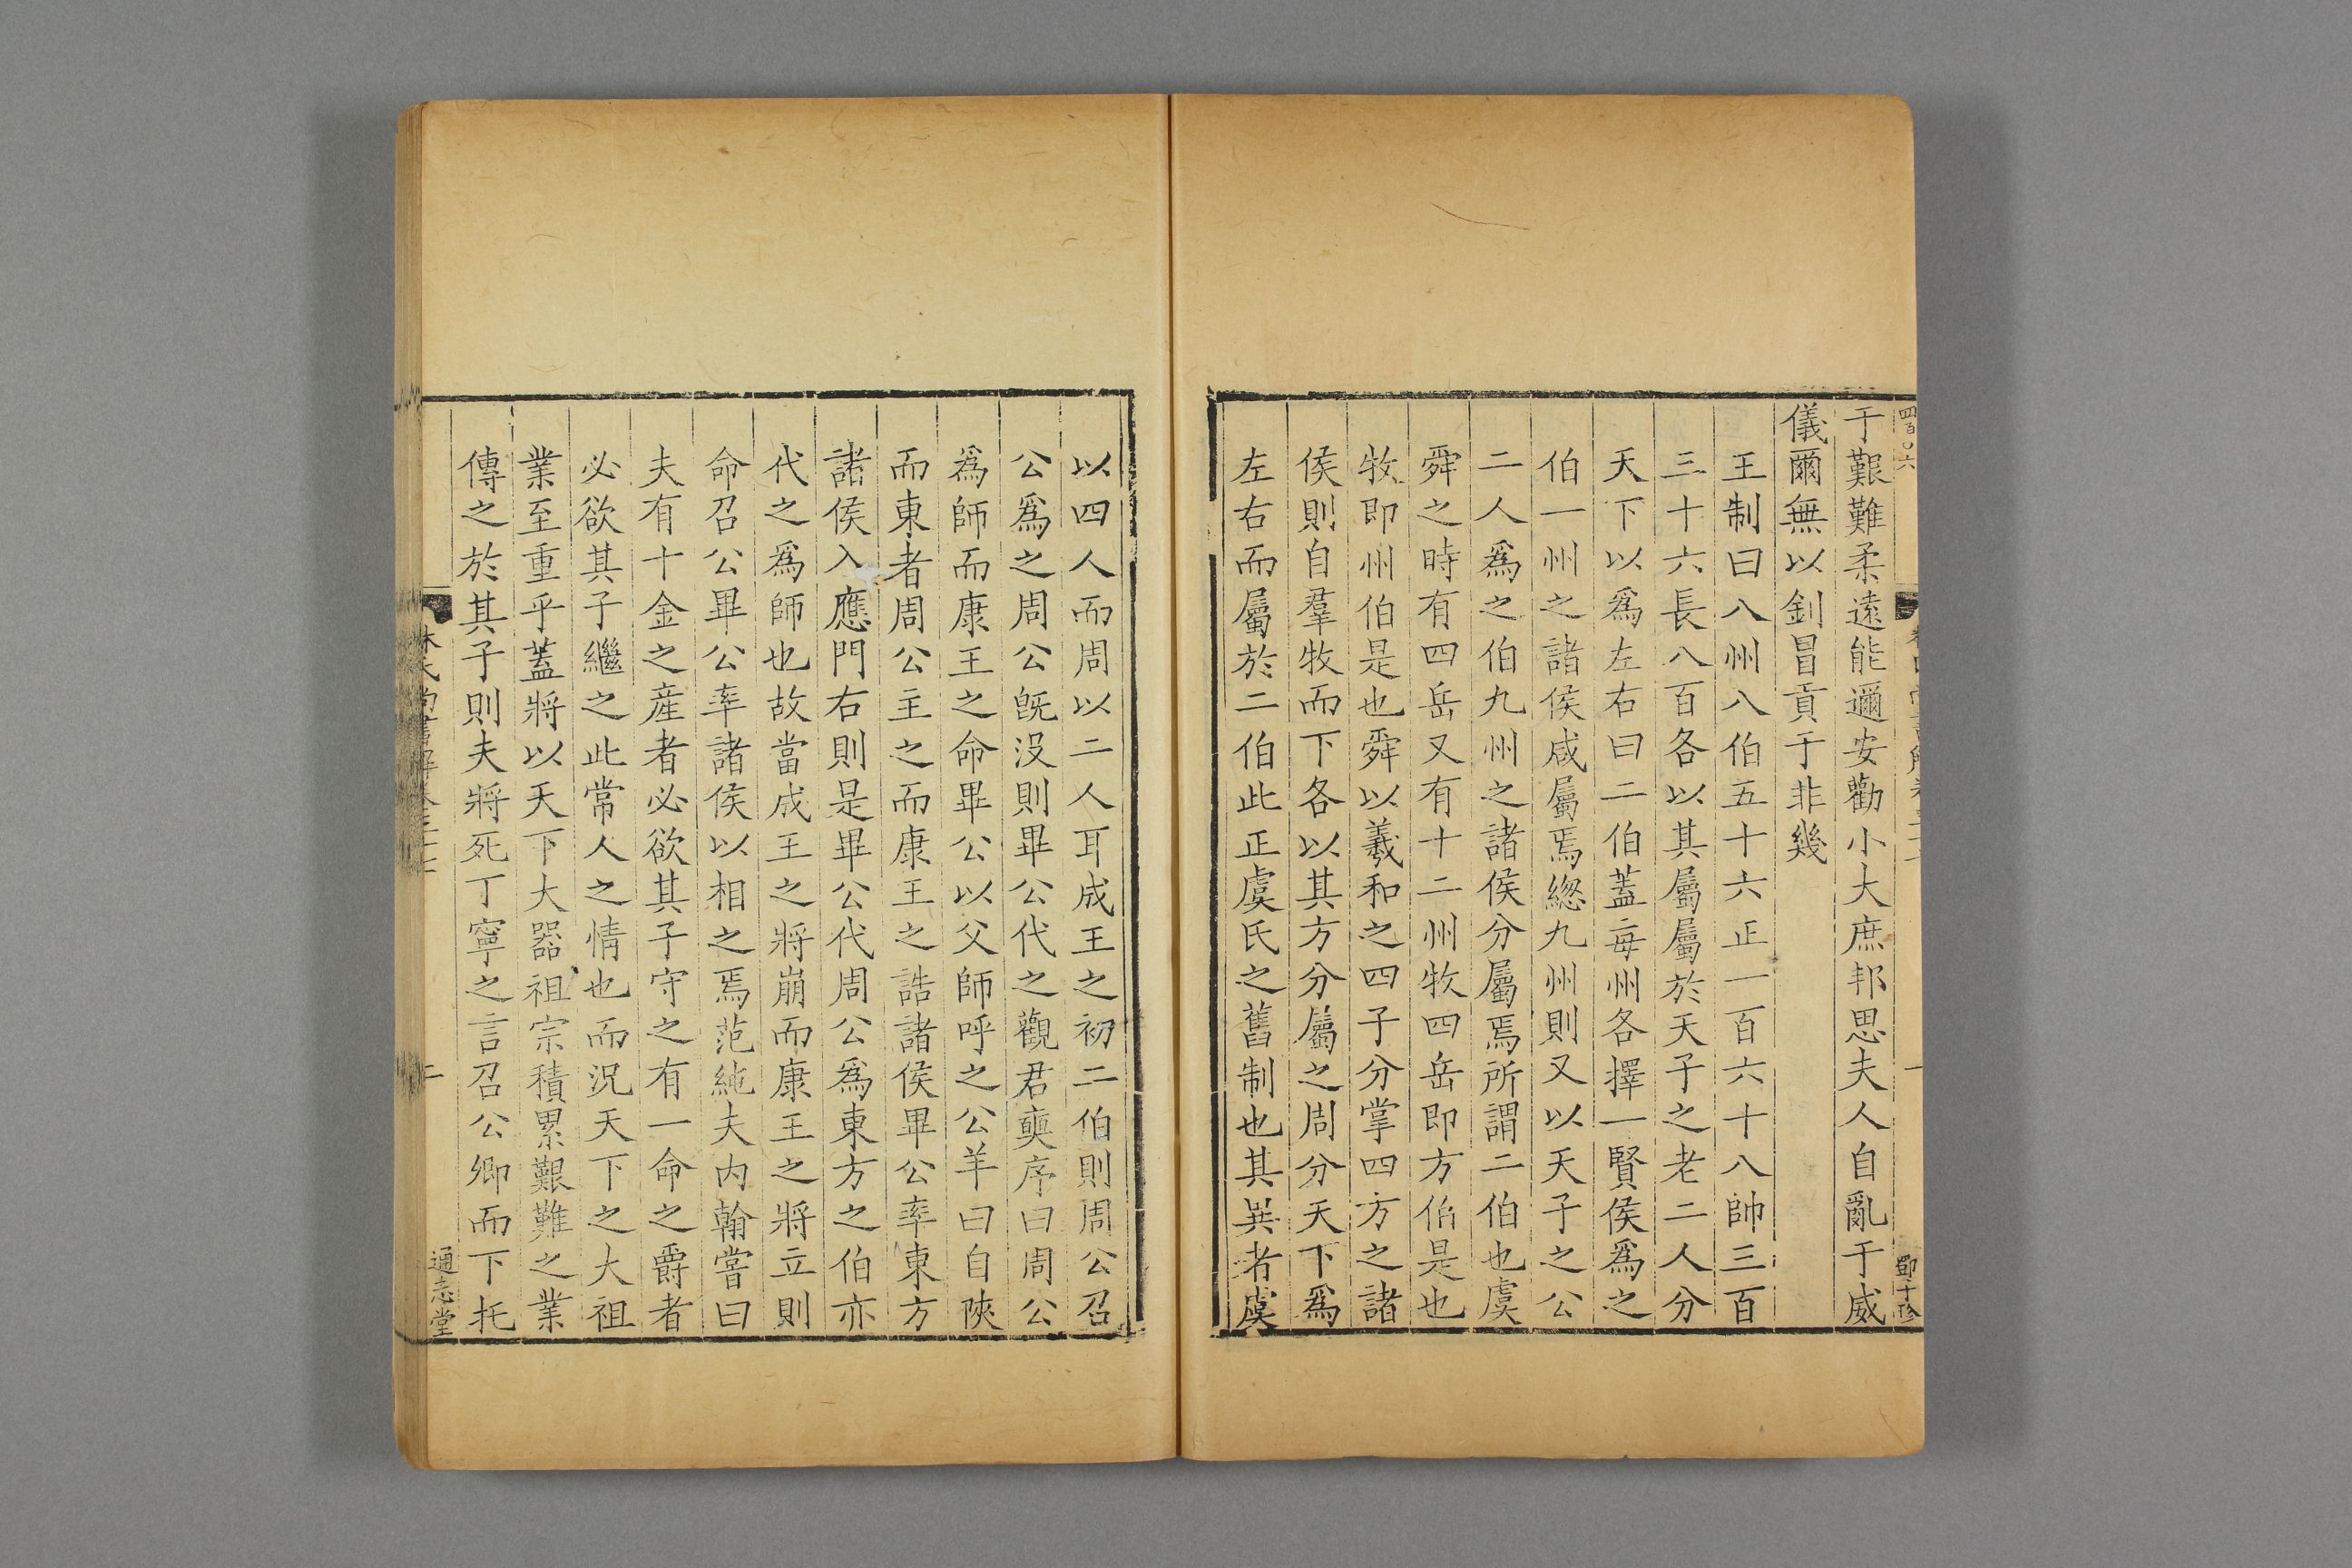 四百〇六
鄧十珍
于艱難柔遠能邇安勸小大庶邦思夫人自亂于威
儀爾無以釗冒貢于非幾
王制曰八州八伯五十六正一百六十八帥三百
三十六長八百各以其屬屬於天子之老二人分
天下以爲左右曰二伯蓋毎州各擇一賢侯爲之
伯一州之諸侯咸屬焉緫九州則又以天子之公
二人爲之伯九州之諸侯分屬焉所謂二伯也虞
舜之時有四岳又有十二州牧四岳即方伯是也
牧即州伯是也舜以羲和之四子分掌四方之諸
侯則自羣牧而下各以其方分屬之周分天下爲
左右而屬於二伯此正虞氏之舊制也其異者虞
以四人而周以二人耳成王之初二伯則周公召
公爲之周公旣没則畢公代之觀君奭序曰周公
爲師而康王之命畢公以父師呼之公羊曰自陜
而東者周公主之而康王之誥諸侯畢公率東方
諸侯入應門右則是畢公代周公爲東方之伯亦
代之爲師也故當成王之將崩而康王之將立則
命召公畢公率諸侯以相之焉范純夫内翰嘗曰
夫有十金之産者必欲其子守之有一命之爵者
必欲其子繼之此常人之情也而况天下之大祖
業至重乎蓋將以天下大器祖宗積累艱難之業
傳之於其子則夫將死丁寧之言召公卿而下托
林氏尚書解卷三十七
二
通志堂